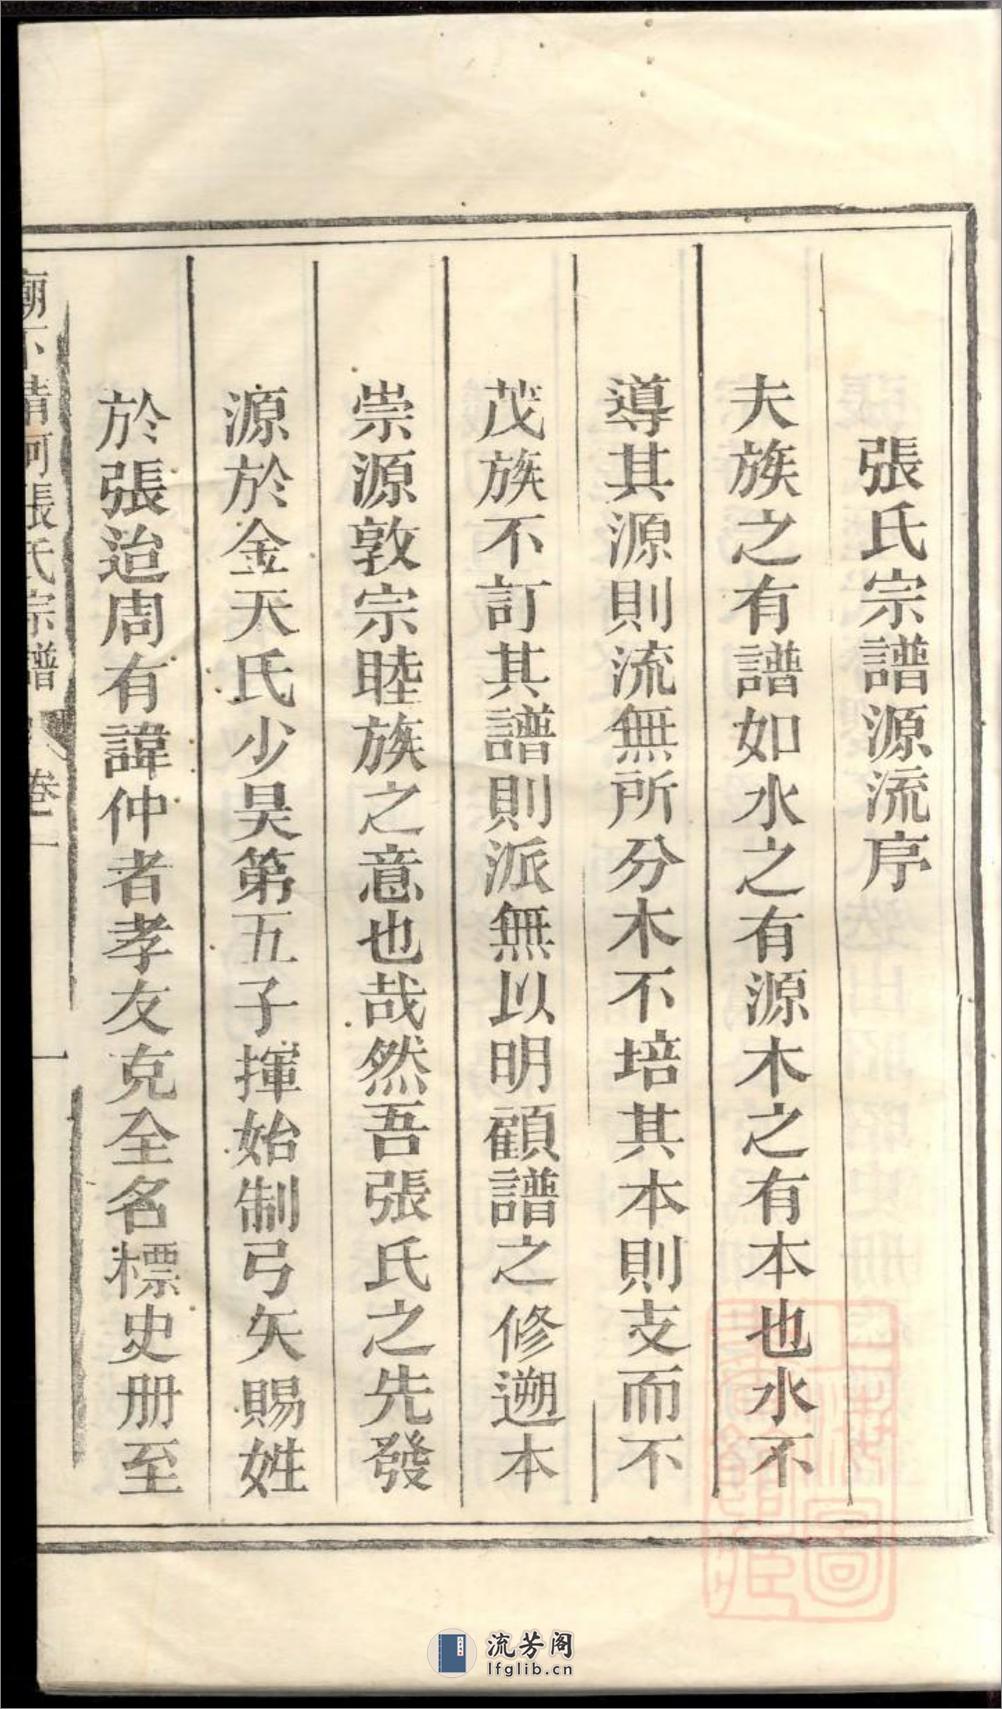 張氏宗譜源流序
夫族之有譜如水之有源木之有本也水不
導其源則流無所分木不培其本則支而不
茂族不訂其譜則派無以明顧譜之修遡本
崇源敦宗睦族之意也哉然吾張氏之先發
源於金天氏少昊第五子揮始制弓矢賜姓
於張迨周有諱仲者孝友克全名標史册至
廟下清河張氏宗譜 卷一 一
流芳阁
lfglib.cn